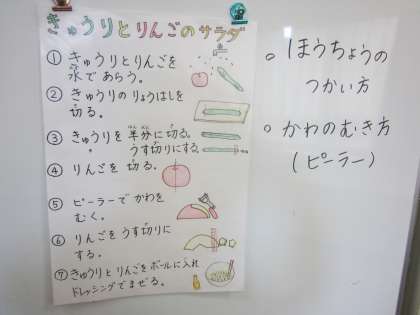 きゅうりとりんごのサラダ
① きゅうりとりんごを
水であらう。
② きゅうりのりょうはしを
切る。
③ きゅうりを半分に切る。
うす切りにする。
④ りんごを切る。
⑤ ピーラーでかわを
むく。
⑥ りんごをうす切りに
する。
⑦ きゅうりとりんごをボールに入れ
ドレッシングでまぜる。
。ほうちょうの
つかい方
。かわのむき方
(ピーラー)